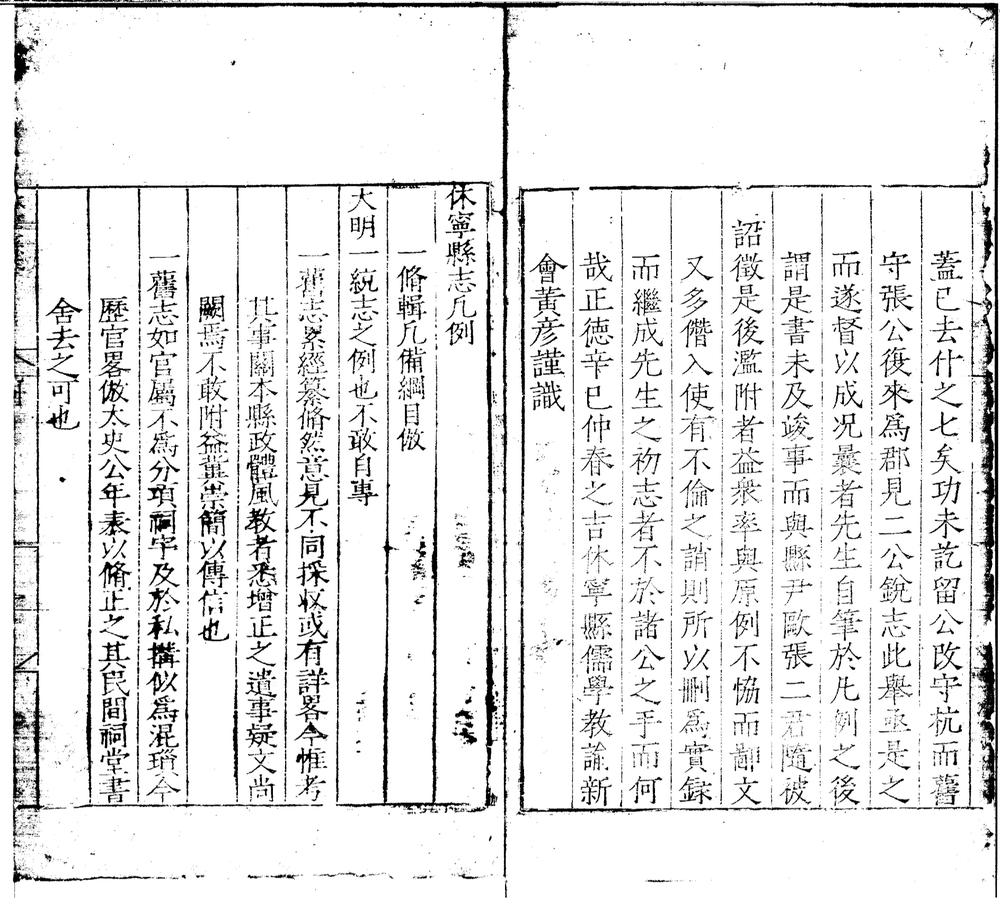 蓋已去什之七矣功未訖留公改守杭而舊
守張公復來爲郡見二公銳志此舉亟是之
而遂督以成况曩者先生自筆於凡例之後
謂是書未及竣事而與縣尹歐張二君隨被
詔徵是後濫附者益衆率與原例不恊而鄙文
又多僭入使有不倫之誚則所以刪爲實録
而繼成先生之初志者不於諸公之手而何
哉正德辛巳仲春之吉休寧縣儒學教諭新
會黃彦謹識
休寧縣志凡例
一脩輯凡備綱目倣
大明一統志之例也不敢自專
一舊志累經纂脩然意見不同採收或有詳畧今惟考
其事關本縣政體風教者悉增正之遺事疑文尚
闕焉不敢附益冀崇簡以傳信也
一舊志如官屬不爲分項祠宇及於私搆似爲混瑣今
歷官畧倣太史公年表以脩正之其民間祠堂書
舍去之可也